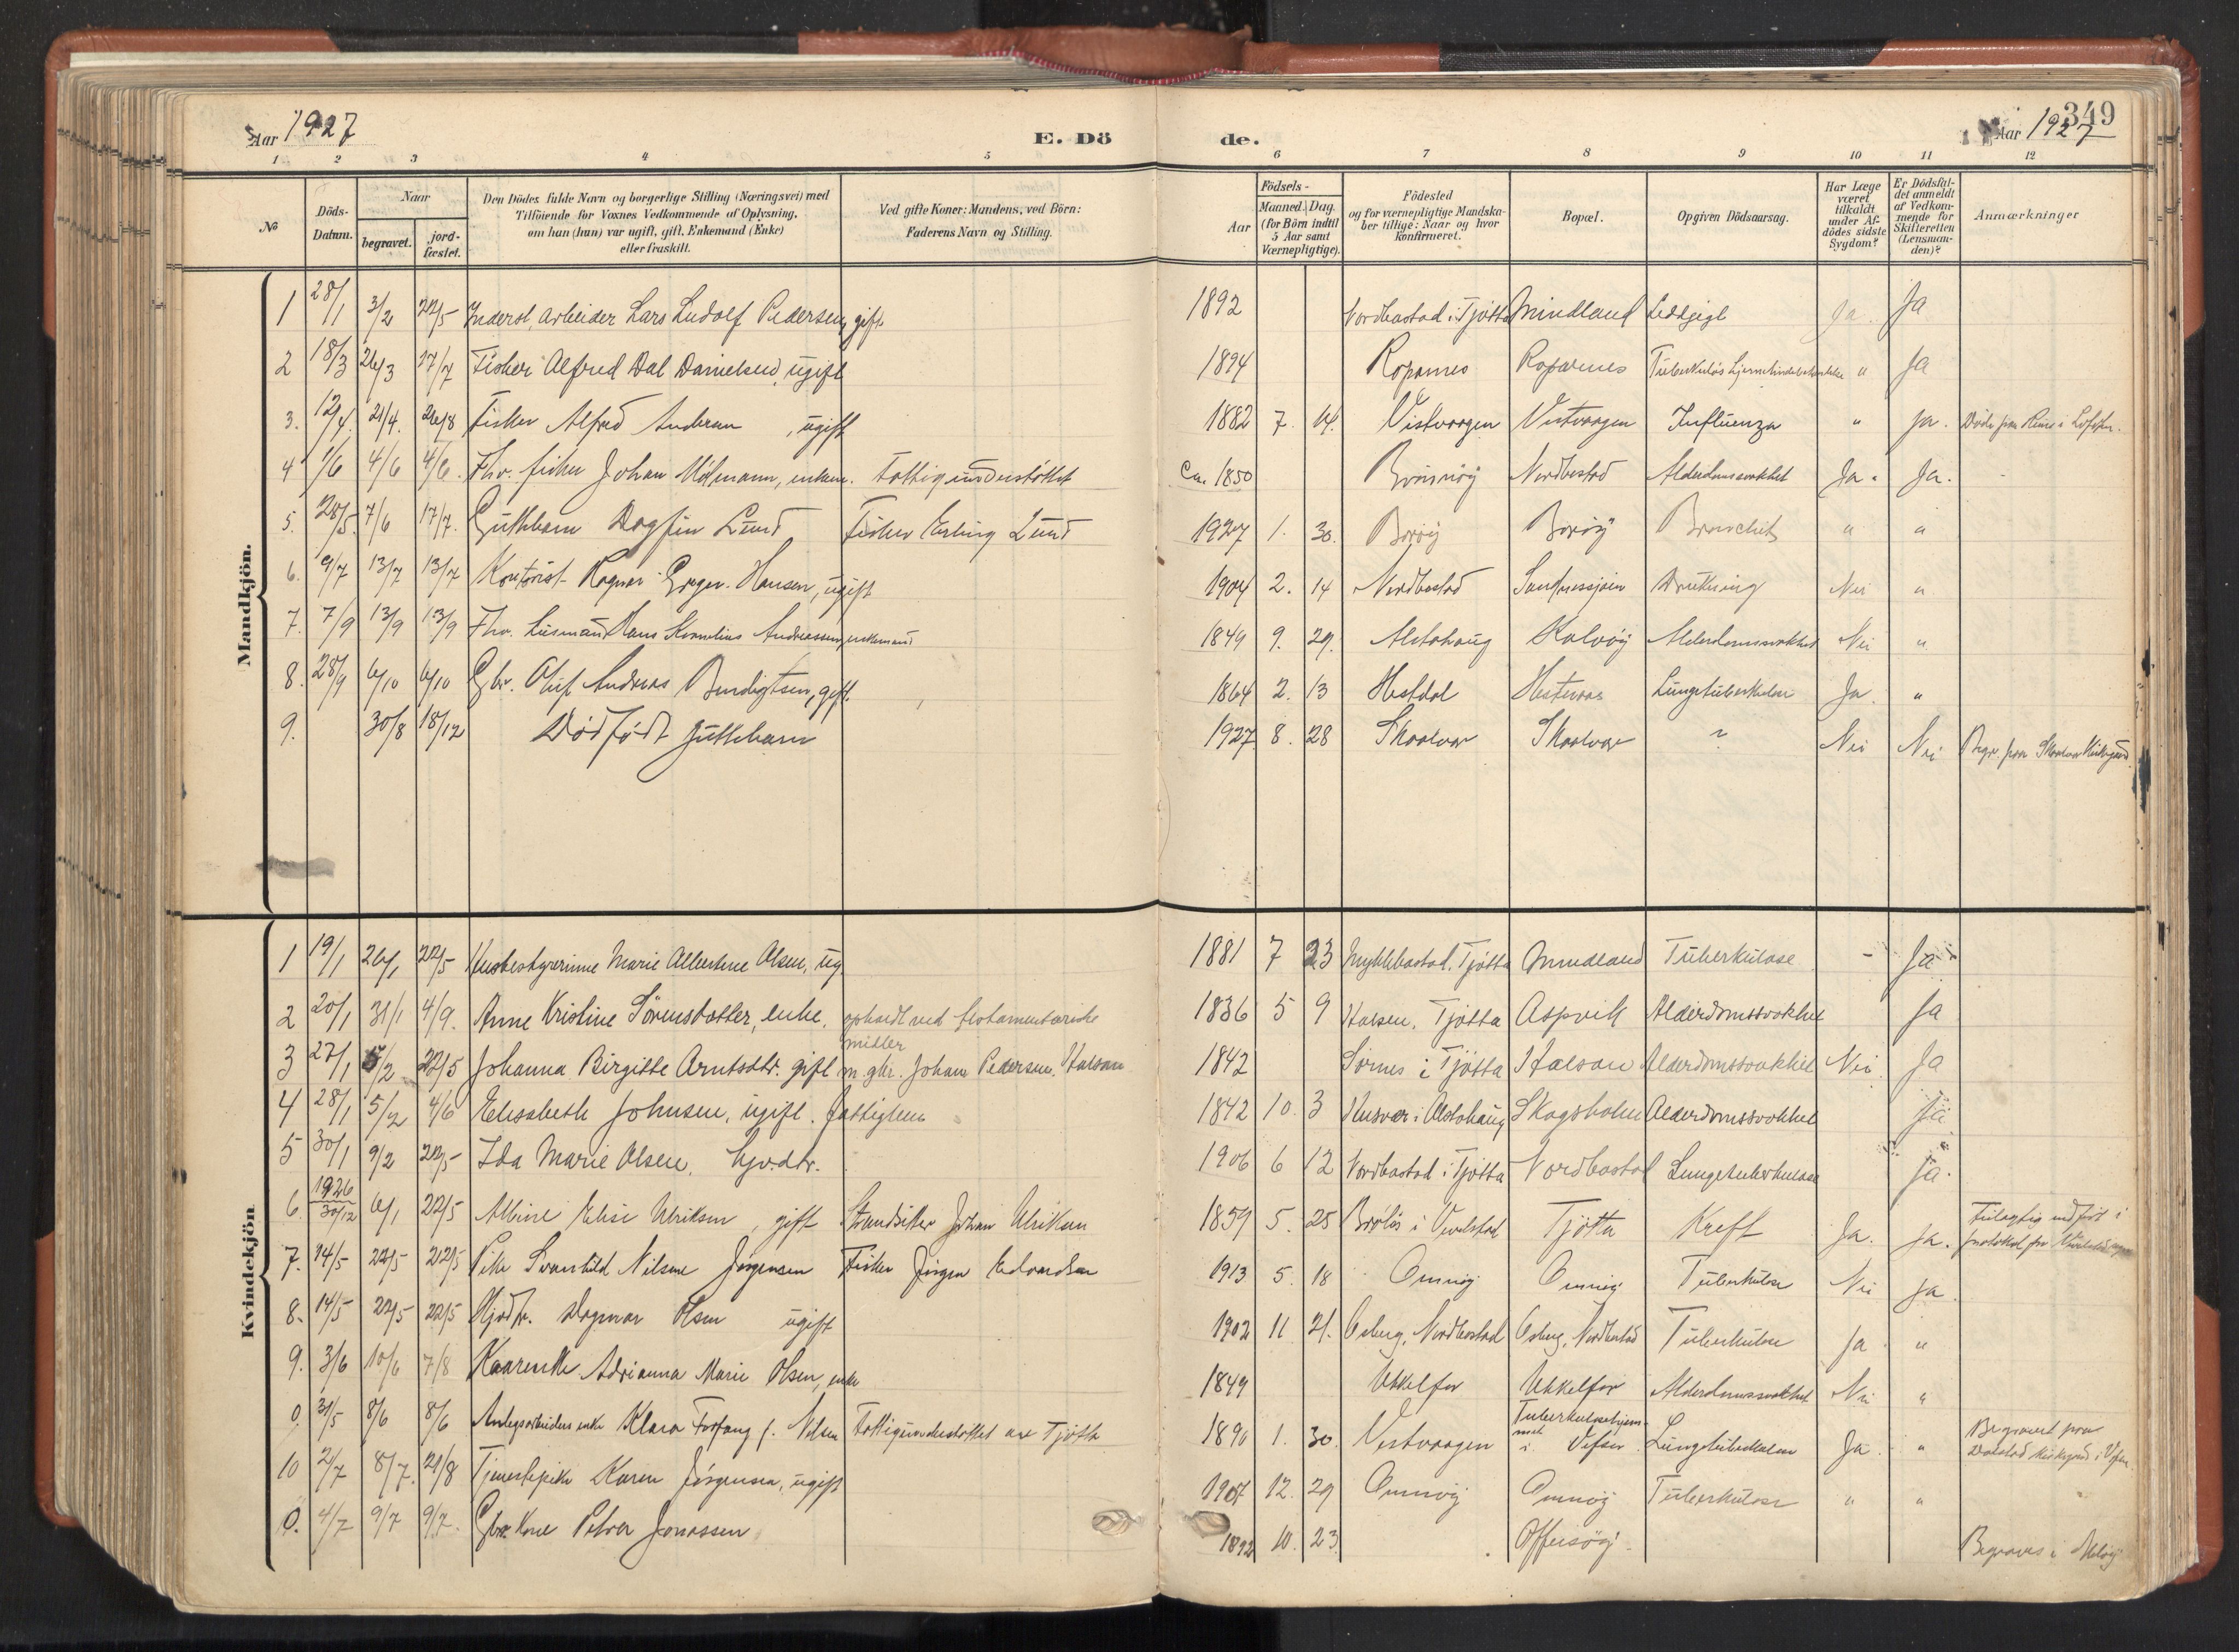 Aar 1927
E. Dö
de.
Aar 1927
349
1 2 3 4 5 6 7 8 9 10 11 12
№
Döds-Datum.
Naar
begravet.
jord-fæstet.
Den Dödes fulde Navn og borgerlige Stilling (Næringsvei) med
Tilföiende for Voxnes Vedkommende af Oplysning,
om han (hun) var ugift, gift, Enkemand (Enke)
eller fraskilt.
Ved gifte Koner: Mandens, ved Börn:
Faderens Navn og Stilling.
Födsels-
Aar
Maaned. Dag.
(for Börn indtil
5 Aar samt
Værnepligtige).
Födested
og for værnepligtige Mandska-
ber tillige: Naar og hvor
Konfirmeret.
Bopæl.
Opgiven Dödsaarsag.
Har Læge
været
tilkaldt
under Af-
dödes sidste
Sygdom?
Er Dödsfal-
det anmeldt
af Vedkom-
mende for
Skifteretten
(Lensman-
den)?
Anmærkninger
Mandkjön.
1 28/1 3/2 22/5 Arbeider Lars Ludolf Pedersen, gift 1892 Nordbostad i Tjøtta Mindland Ja. Ja
2 18/3 26/3 17/7 Fisker Alfred Dal Danielsen, ugift 1894 Ropannes Roparnes " Ja
3. 12/4. 21/4. 26/8 Fisker Alfred Andersen, ugift 1882 7. 14. Vistvaagen Vistvaagen Influenza " ja. Døde paa Reine i Lofoten.
4 1/6 4/6 4/6. Fhv. fisker Johan Holmann, enkem. Fattigunderstøttet Ca. 1850 Brønnøy Nordbostad Alderdomssvakhet Ja. Ja.
5. 28/5. 7/6 17/7. Guttebarn Dagfin Lund Fisker Erling Lund 1927 1. 30. Borøy Borøy Bronchit " "
6. 9/7 13/7 13/7 Kontorist Ragnar Hansen, ugift 1904 2. 14 Nordbostad Sandnessjøen Drukning Nei "
7. 7/9 13/9 13/9 Fhv. Hans Kornelius Andreassen, enkemand 1849 9. 29. Alstahaug Kalvøy Alderdomssvakhet Nei "
8. 28/9 6/10 6/10 Gbr. Oluf Andreas Bendigtsen, gift. 1864 2. 13 Hestdal Lungetuberkulose Ja "
9. 30/8 18/12 Dødfødt guttebarn 1927 8. 28 Skaalvær Skaalvær ? Nei Nei Begr. paa Skaalvær Kirkegaard
Kvindekjön
1 19/1 26/1 22/5 Husbestyrerinne Marie Albertine Olsen, ug 1881 7 23 Myklebostad, Tjøtta Mindland Tuberkulose - Ja
2 20/1 31/1 4/9. Anne Kristine Sørensdatter, enke. ophandlt ved testamentariske
midler 1836 5 9 Halsen, Tjøtta Aspvik Alderdomssvakhet Ja
3 27/1 5/2 22/5 Johanna Birgitte Arntsdtr. gift m. gbr. Johan Pedersen, Halsan 1842 Sørnes i Tjøtta Halsan Alderdomssvakhet Nei Ja
4 28/1 5/2 4/6 Elisabeth Johnsen, ugift. fattiglem 1842 10. 3 Husvær i Alstahaug Skogsholm Alderdomssvakhet Ja
5 30/1 9/2 22/5 Ida Marie Olsen, hjv.dtr. 1906 6 12 Nordbostad i Tjøtta Nordbostad Lungetuberkulose ja.
6. 1926 30/12 6/1 22/5 Albine Elise Ulriksen, gift Strandsitter Johan Ulriksen 1859 5. 25 i Vevelstad Tjøtta Kreft Ja. ja. Feilagtig indført i
protokol for Vevelstad
7. 14/5 22/5 22/5 Pike Svanhild Nilsine Jørgensen Fisker Jørgen Edvardsen 1913 5. 18 Omnøy Omnøy Tuberkulose Nei ja.
8. 14/5 22/5 22/5 Hjvdtr. Dagmar Olsen ugift 1902 11 21. Osberg, Nordbostad Osberg, Nordbostad Tuberkulose Ja "
9. 3/6 10/6 7/8 Kaarenke Adrianna Marie Olsen, enke 1849 Ukkelfor Ukkelfor Alderdomssvakhet Nei "
0. 31/5 8/6 8/6 Anlegsarbeiders enke Klara Forfang f. Nilsen Fattigunderstøttet av Tjøtta 1890 1. 30. Vistvaagen Tuberkulosehjem-
met
i Vefsn Lungetuberkulose Ja. " Begravet paa
Dolstad kirkegaard i Vefsn.
10 2/7 8/7. 21/8 Tjenestepike Karen Jørgensen, ugift 1907 12. 29 Omnøy Omnøy Tuberkulose " "
0. 4/7 9/7 9/7. Gbr. Kone Petra Jonassen 1892 10. 23. Offersøy. Begraves i Meløy